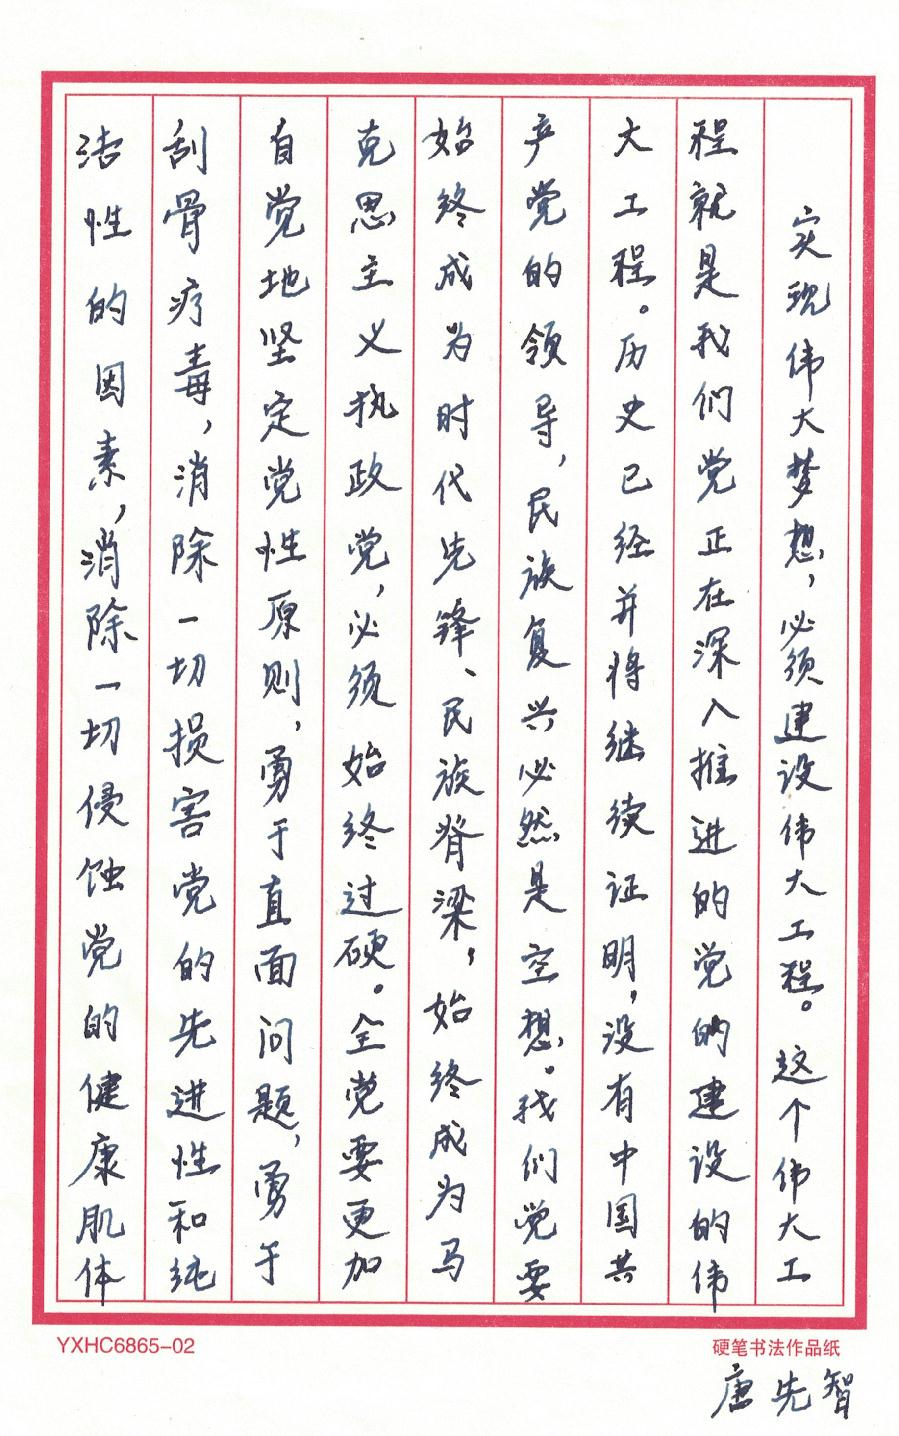 实现伟大梦想，必须建设伟大工程。这个伟大工
程就是我们党正在深入推进的党的建设的伟
大工程。历史已经并将继续证明，没有中国共
产党的领导，民族复兴必然是空想。我们党要
始终成为时代先锋、民族脊梁，始终成为马
克思主义执政党，必须始终过硬。全党要更加
自觉地坚定党性原则，勇于直面问题，勇于
刮骨疗毒，消除一切损害党的先进性和纯
洁性的因素，消除一切侵蚀党的健康肌体
YXHC6865-02
硬笔书法作品纸
唐先智